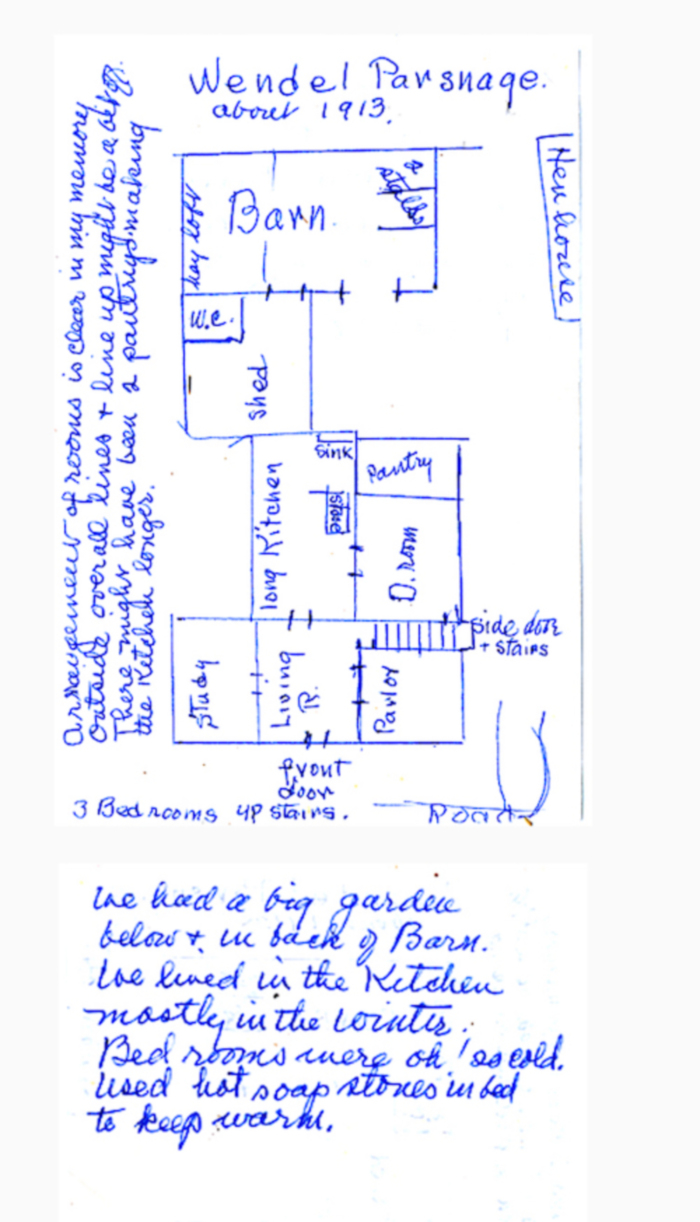 Wendel Parsnage.
about 1913.
Arrangement of rooms is clear in my memory
outside overall lines + line up might be a bit off.
There might have been a pantry making
the Kitchen longer.
Hen house
hay loft
Barn
2 stalls
W.C.
shed
sink
Pantry
long Kitchen
stove
D. room
side door
+ stairs
Study
Living
R.
Parlor
front
door
3 Bedrooms up stairs.
Road
We had a big garden
below + in back of Barn.
We lived in the Kitchen
mostly in the winter.
Bed rooms were oh! so cold.
Used hot soap stones in bed
to keep warm.